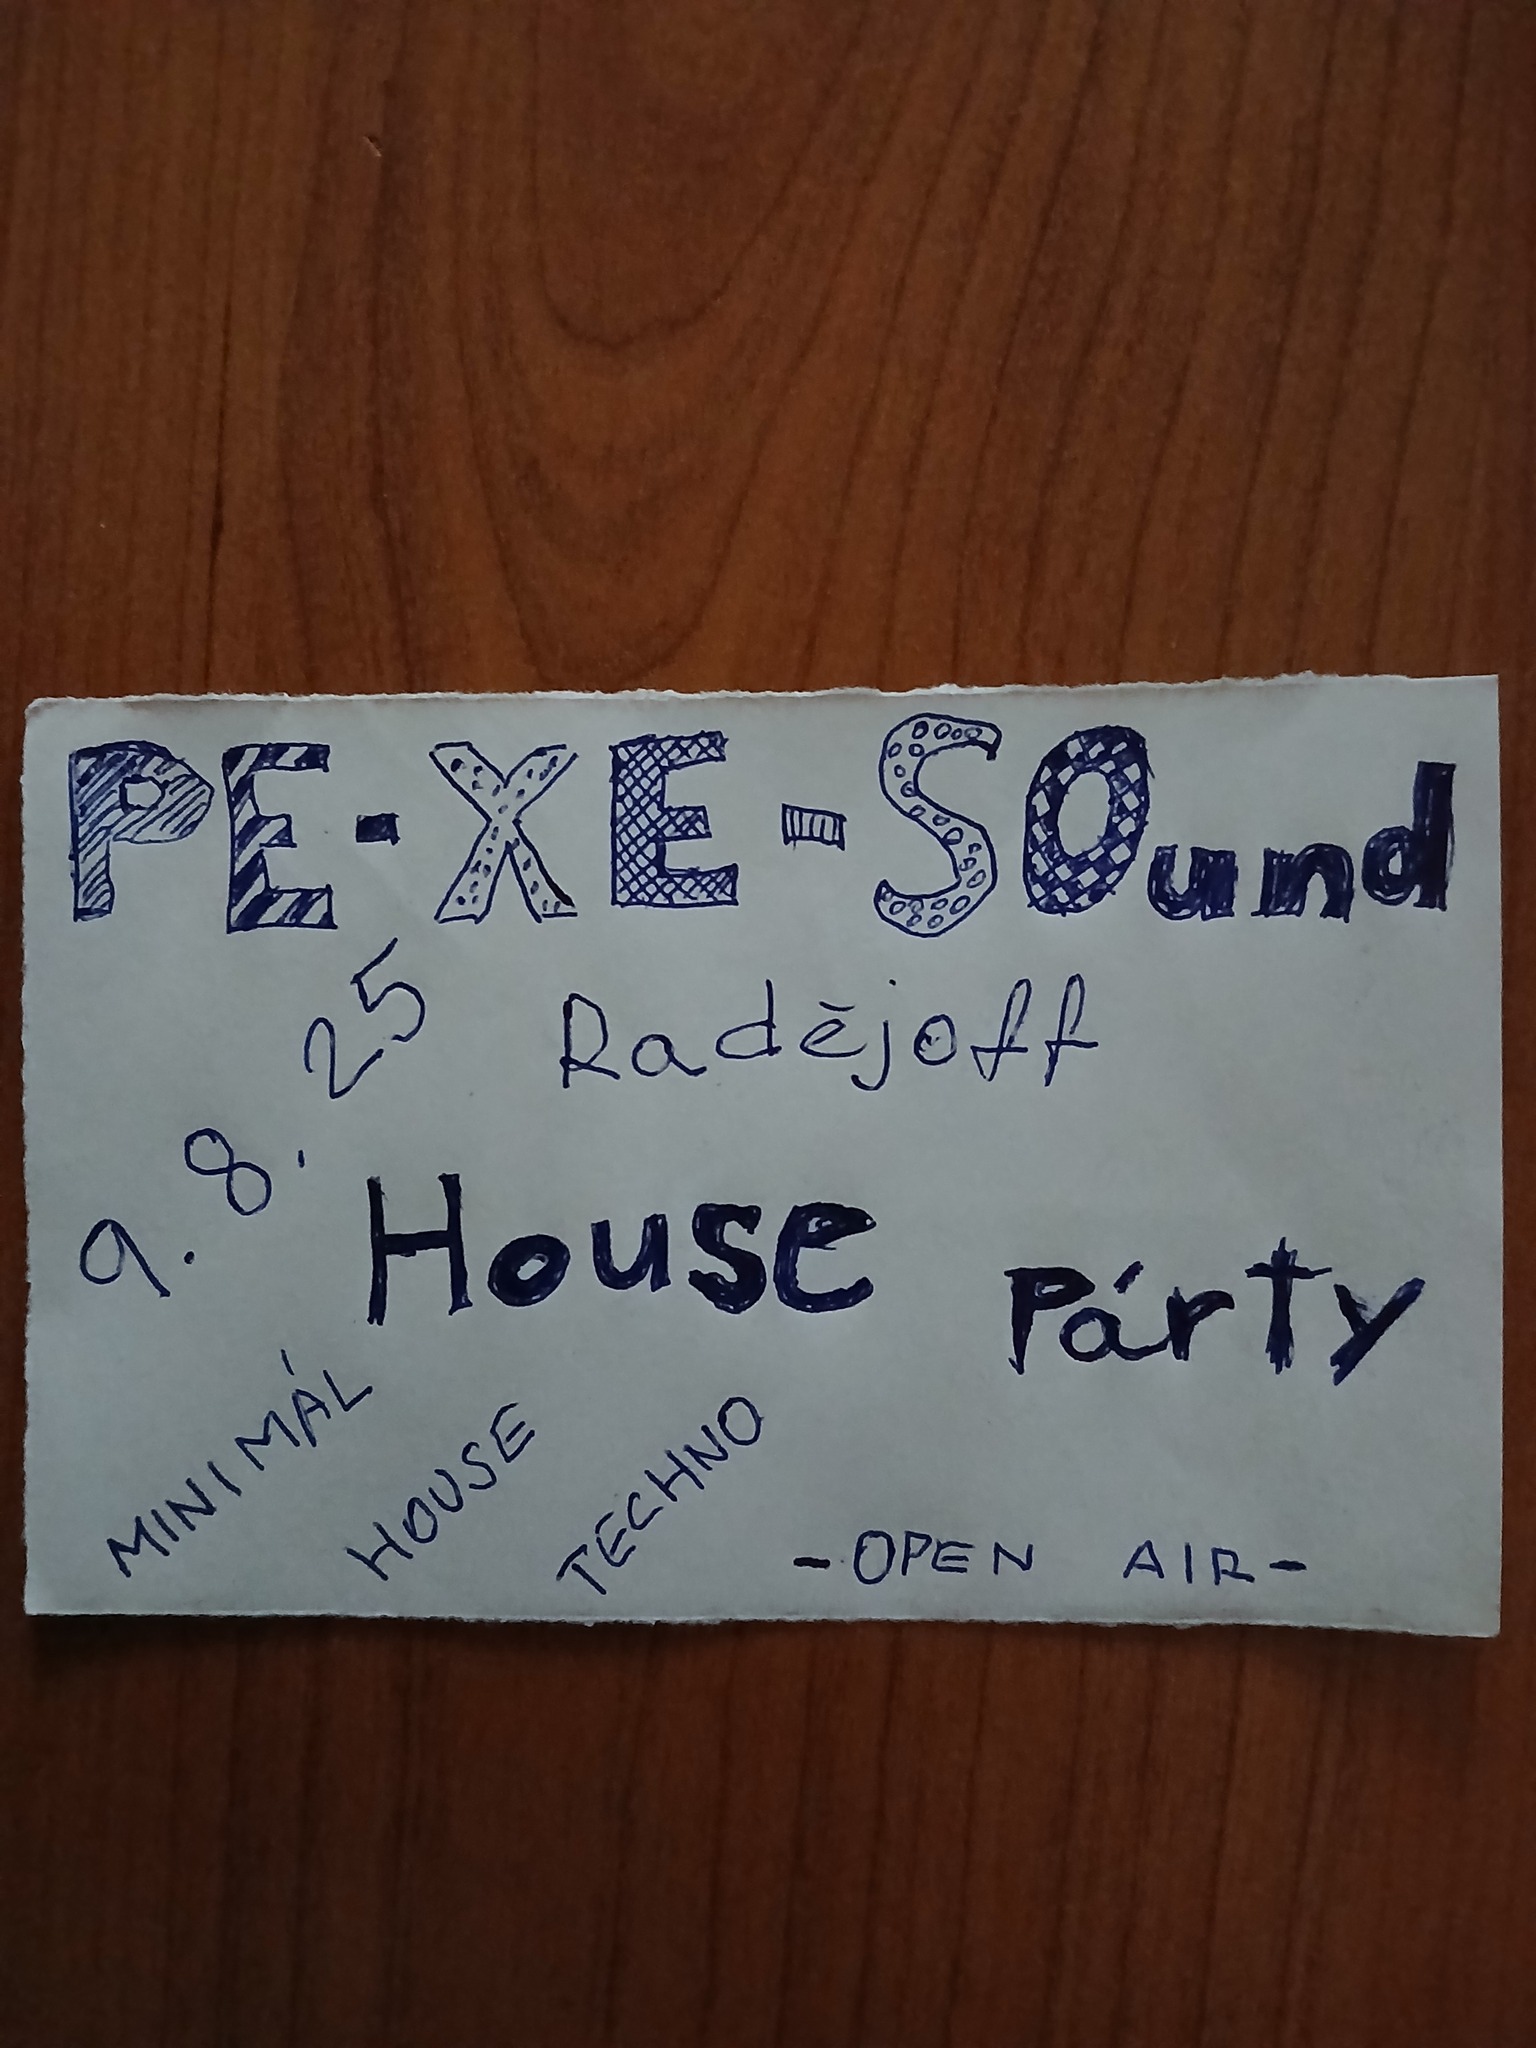 PE-XE-SOund
9.8.25
Radějoff
House Párty
MINIMÁL
HOUSE
TECHNO
-OPEN AIR-